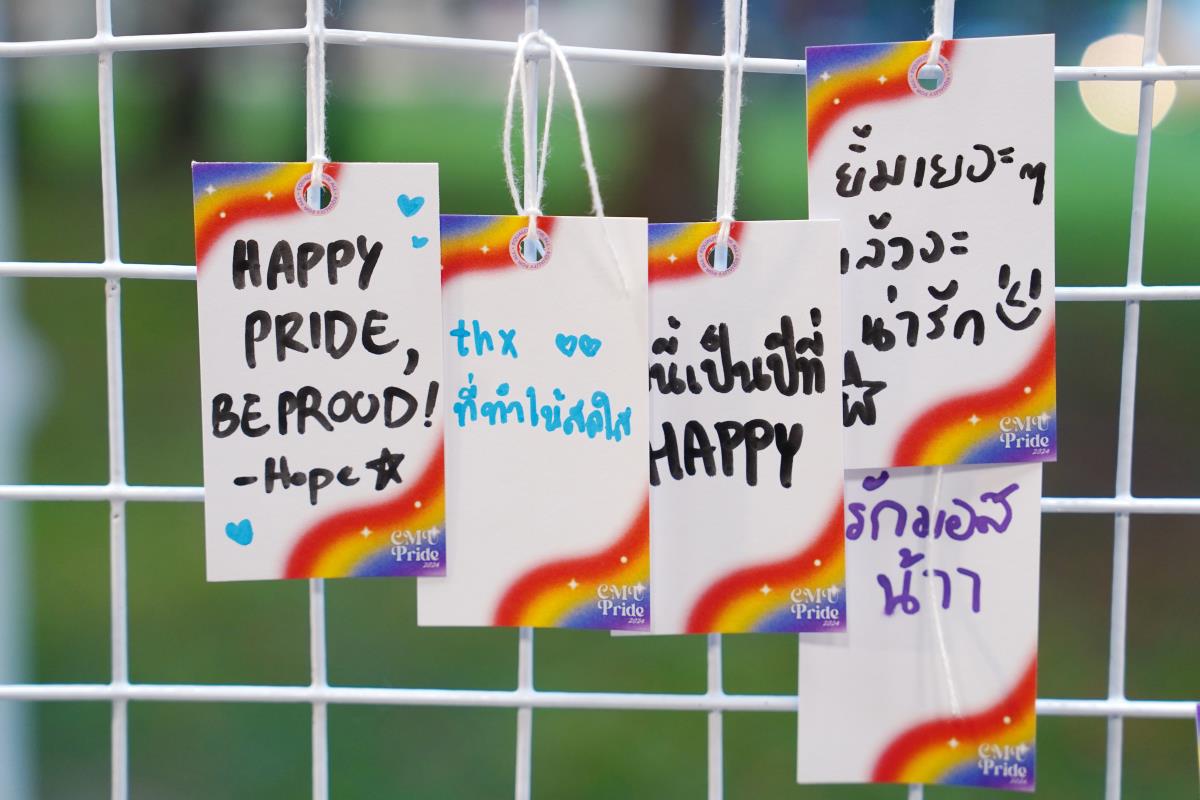 HAPPY
PRIDE,
BE PROUD!
-Hope
CMU
Pride
2024
thx
ที่ทำให้สดใส
CMU
Pride
2024
นี้เป็นปีที่
HAPPY
CMU
Pride
2024
ยิ้มเยอะๆ
แล้วจะ
น่ารัก
CMU
Pride
2024
น้าา
CMU
Pride
2024